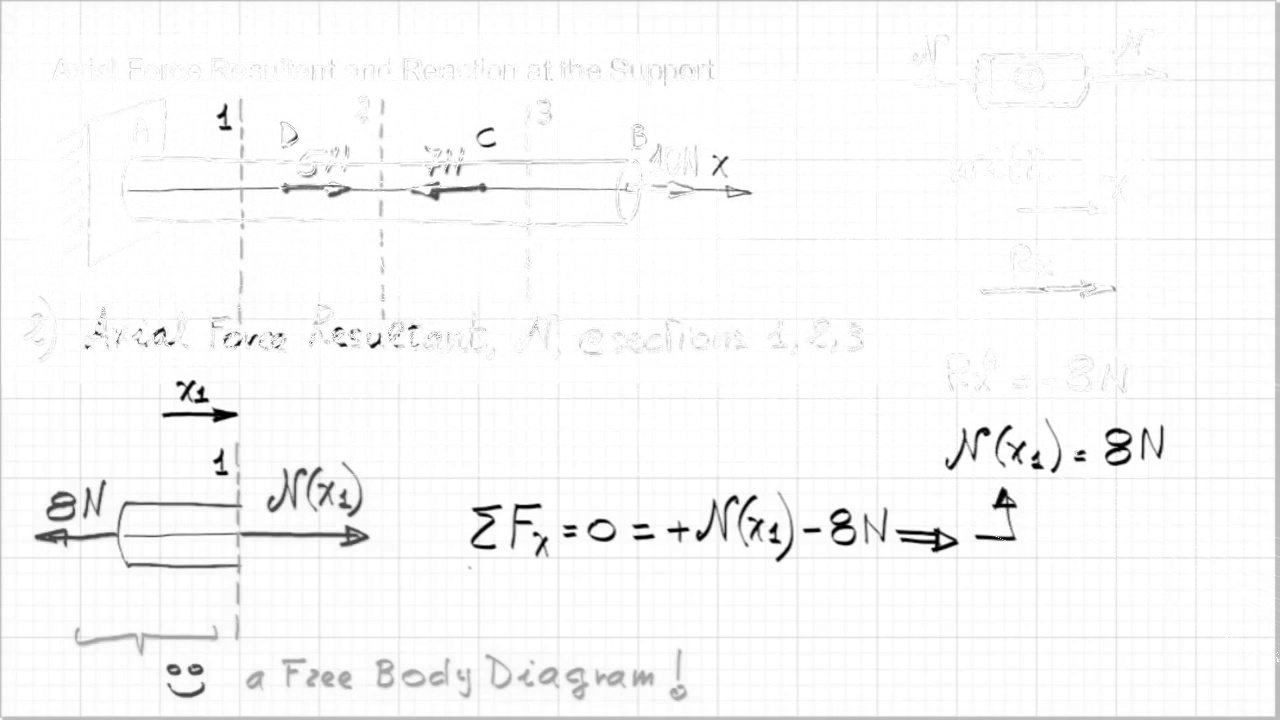 Axial Force Resultant and Reaction at the Support
N N
A 1 D 2 C 3 B
5N 7N 10N X
x
Rx
2) Axial Force Resultant, N, @ sections 1, 2, 3
Rx^A = -8N
x1
N(x1) = 8N
1
8N N(x1)
ΣFx = 0 = +N(x1) - 8N ⇒
a Free Body Diagram!